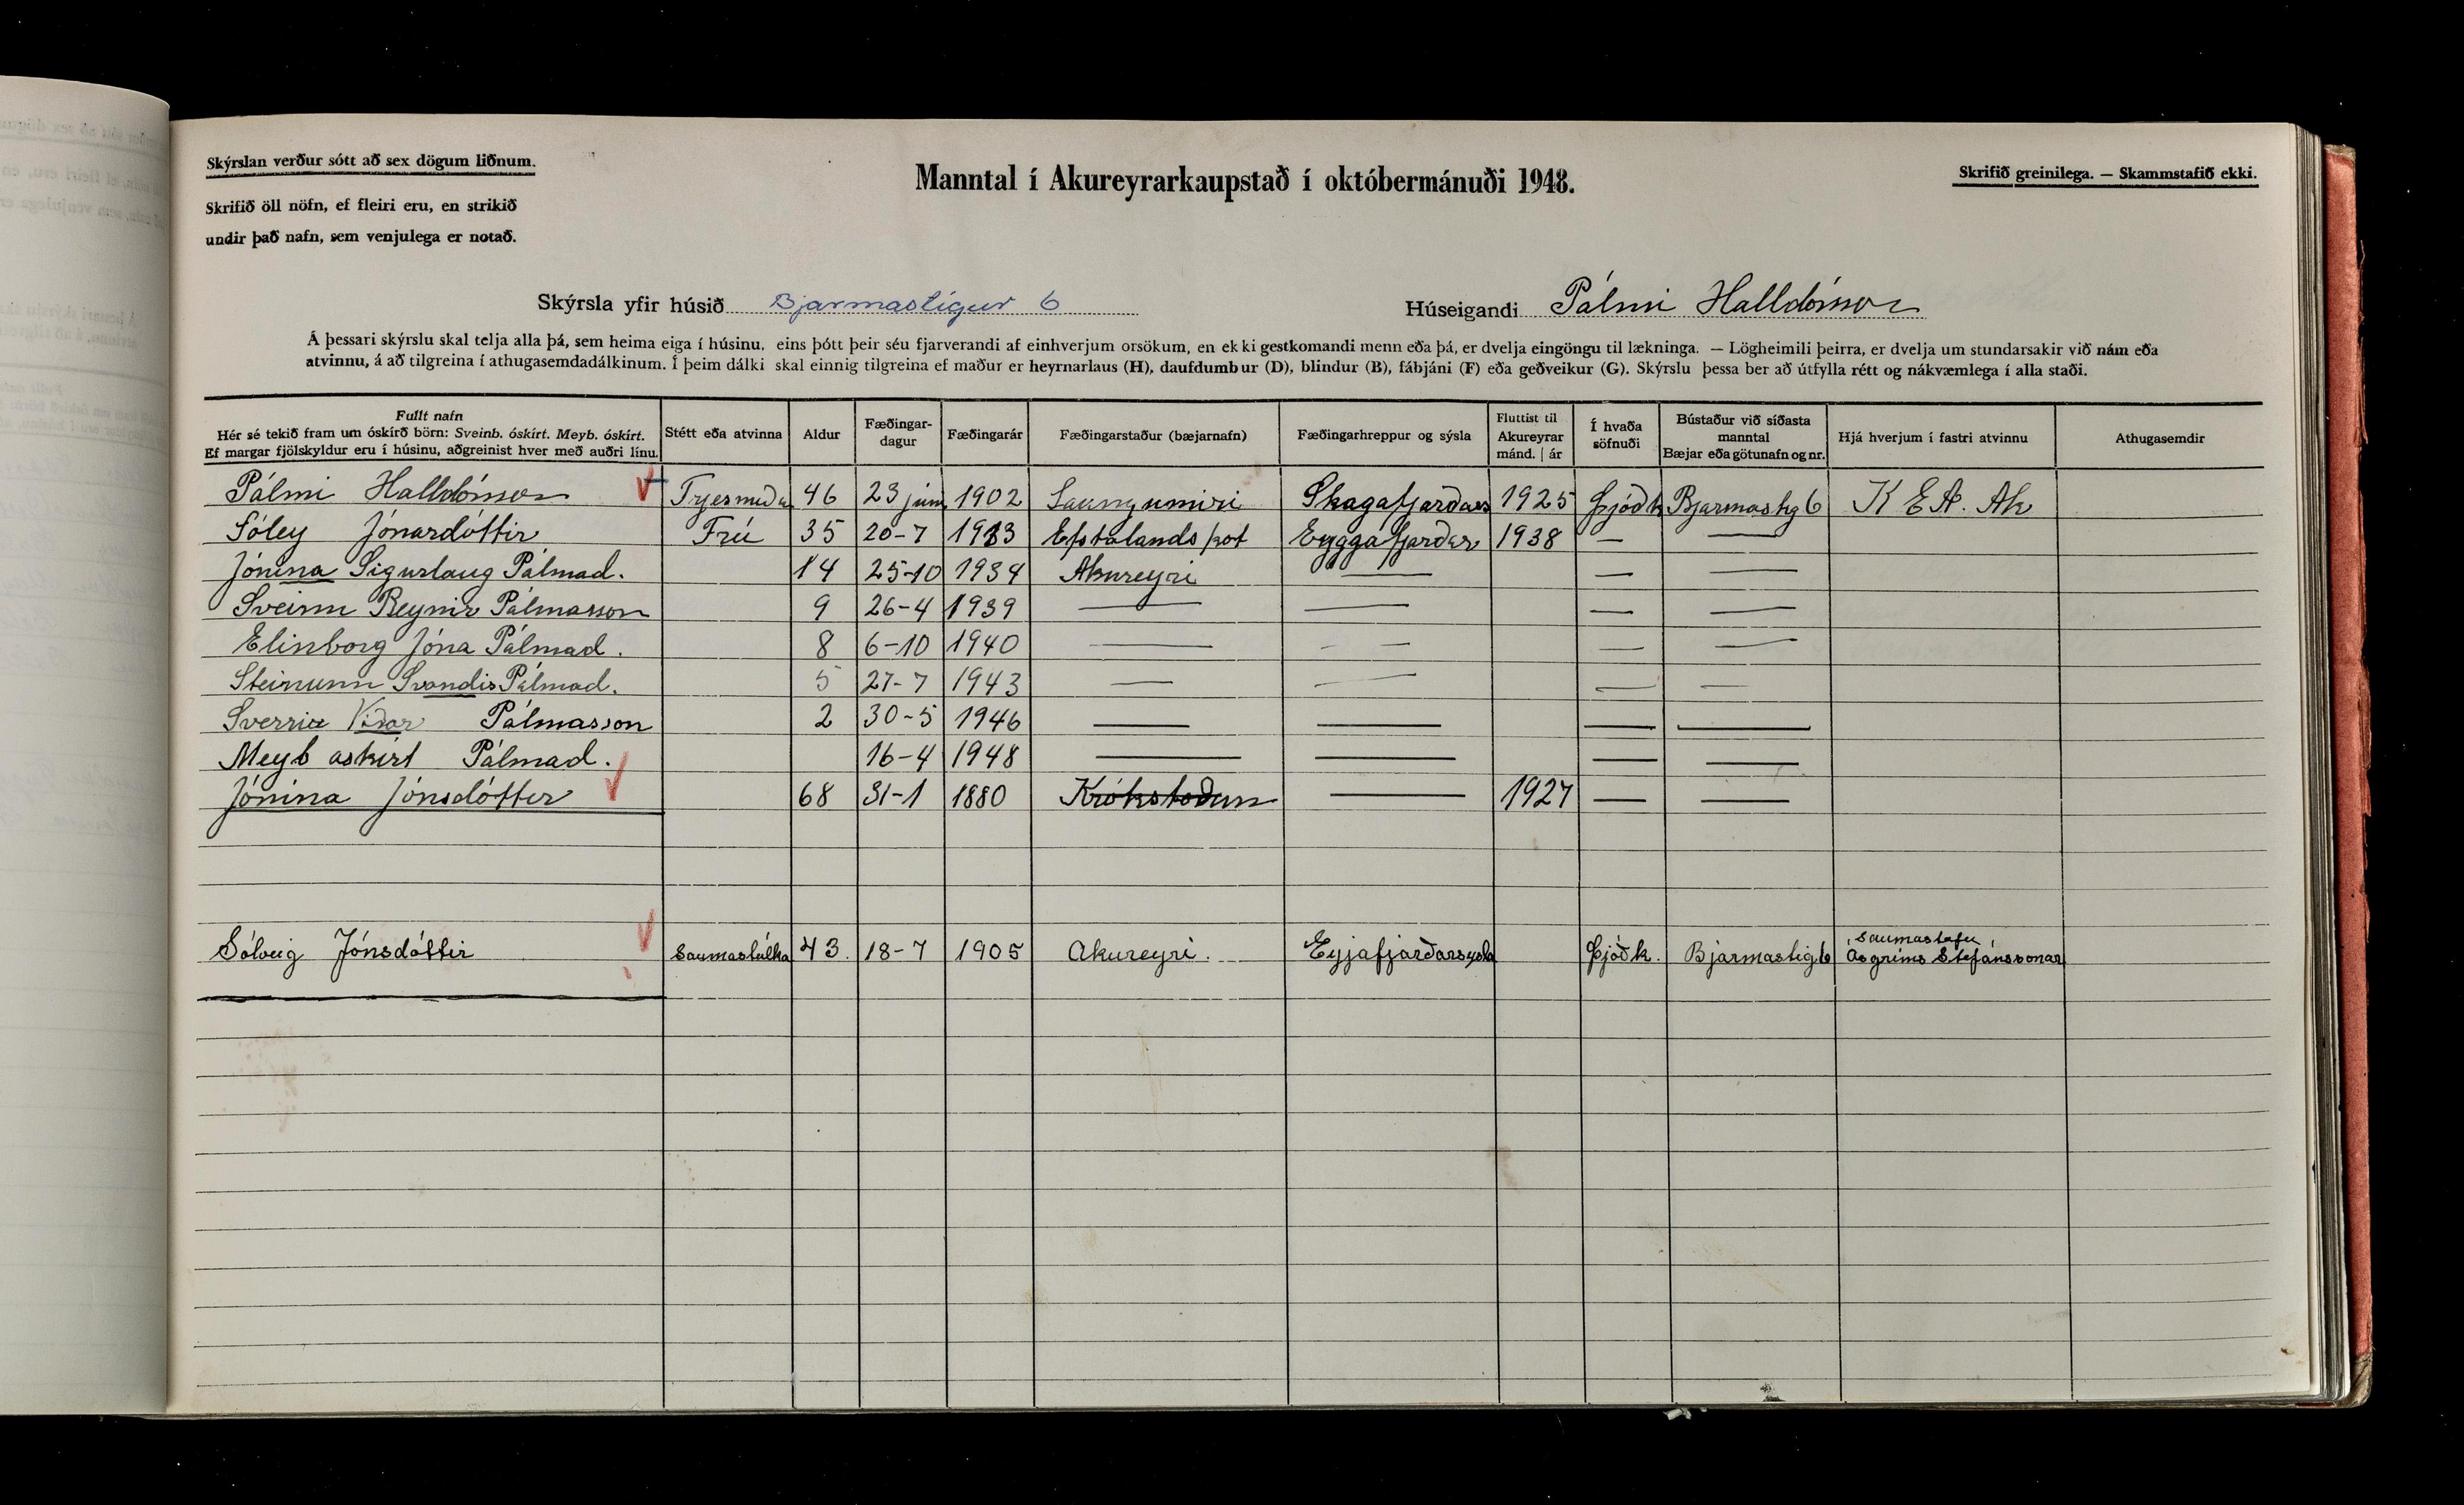 Skýrslan verður sótt að sex dögum liðnum.
Skrifið öll nöfn, ef fleiri eru, en strikið
undir það nafn, sem venjulega er notað.
Manntal í Akureyrarkaupstað í októbermánuði 1948.
Skrifið greinilega. — Skammstafið ekki.
Skýrsla yfir húsið Bjarmastígur 6
Húseigandi Pálmi Halldórsson
Á þessari skýrslu skal telja alla þá, sem heima eiga í húsinu, eins þótt þeir séu fjarverandi af einhverjum orsökum, en ekki gestkomandi menn eða þá, er dvelja eingöngu til lækninga. — Lögheimili þeirra, er dvelja um stundarsakir við nám eða
atvinnu, á að tilgreina í athugasemdadálkinum. Í þeim dálki skal einnig tilgreina ef maður er heyrnarlaus (H), daufdumbur (D), blindur (B), fábjáni (F) eða geðveikur (G). Skýrslu þessa ber að útfylla rétt og nákvæmlega í alla staði.
Fullt nafn
Hér sé tekið fram um óskírð börn: Sveinb. óskírt. Meyb. óskírt.
Ef margar fjölskyldur eru í húsinu, aðgreinist hver með auðri línu.
Stétt eða atvinna
Aldur
Fæðingar-
dagur
Fæðingarár
Fæðingarstaður (bæjarnafn)
Fæðingarhreppur og sýsla
Fluttist til
Akureyrar
mánd. | ár
Í hvaða
söfnuði
Bústaður við síðasta
manntal
Bæjar eða götunafn og nr.
Hjá hverjum í fastri atvinnu
Athugasemdir
Pálmi Halldórsson 46 23 júní 1902 Skagafjarðars 1925 Þjóðk Bjarmastig 6 K E A. Ak
Sóley Jónardóttir Frú 35 20-7 1913 Efstalandskot Eyggafjarðar 1938 — —
Jónína Sigurlaug Pálmad. 14 25-10 1934 Akureyri — — —
Sveinn Reynir Pálmasson 9 26-4 1939 — — — —
Elinborg Jóna Pálmad. 8 6-10 1940 — — — —
Steinunn Svandis Pálmad. 5 27-7 1943 — — — —
Sverrir Viðar Pálmasson 2 30-5 1946 — — — —
Meyb oskirt Pálmad. 16-4 1948 — — — —
Jónína Jónsdóttir 68 31-1 1880 Krókstoðum — 1927 — —
Sólveig Jónsdóttir Saumastúlka 43. 18-7 1905 Akureyri. Eyjafjarðarsýsla Þjóðk. Bjarmastig 6 Saumastofu
Ásgríms Stefánssonar